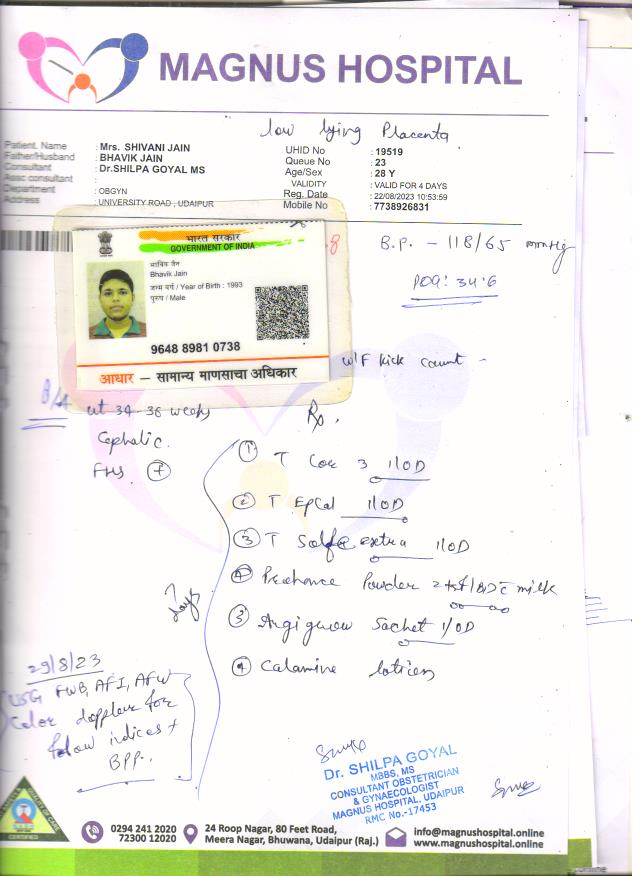 MAGNUS HOSPITAL
low lying Placenta
Patient. Name : Mrs. SHIVANI JAIN
Father/Husband : BHAVIK JAIN
Consultant : Dr.SHILPA GOYAL MS
Assc consultant :
Department : OBGYN
Address : UNIVERSITY ROAD, UDAIPUR
UHID No : 19519
Queue No : 23
Age/Sex : 28 Y
VALIDITY : VALID FOR 4 DAYS
Reg. Date : 22/08/2023 10:53:59
Mobile No : 7738926831
भारत सरकार
GOVERNMENT OF INDIA
भाविक जैन
Bhavik Jain
जन्म वर्ष / Year of Birth : 1993
पुरुष / Male
9648 8981 0738
आधार — सामान्य माणसाचा अधिकार
B.P. - 118/65 mmHg
POG: 34.6
W/F Kick count -
ut 34-36 weeks
Cephalic.
FHS. +
Rx.
① T Cor 3 1 OD
② T EpCal 1 OD
③ T extra 1 OD
Powder 2 tsf BD c milk
Sachet 1 OD
Calamine lotion
7 days
29/8/23
USG FWB, AFI, AFW
Color doppler for
flow indices +
BPP.
Dr. SHILPA GOYAL
MBBS, MS
CONSULTANT OBSTETRICIAN
& GYNAECOLOGIST
MAGNUS HOSPITAL, UDAIPUR
RMC No.-17453
CERTIFIED
0294 241 2020
72300 12020
24 Roop Nagar, 80 Feet Road,
Meera Nagar, Bhuwana, Udaipur (Raj.)
info@magnushospital.online
www.magnushospital.online